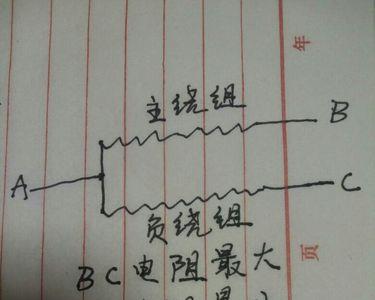 年
主绕组
B
A
C
负绕组
页
BC电阻最大